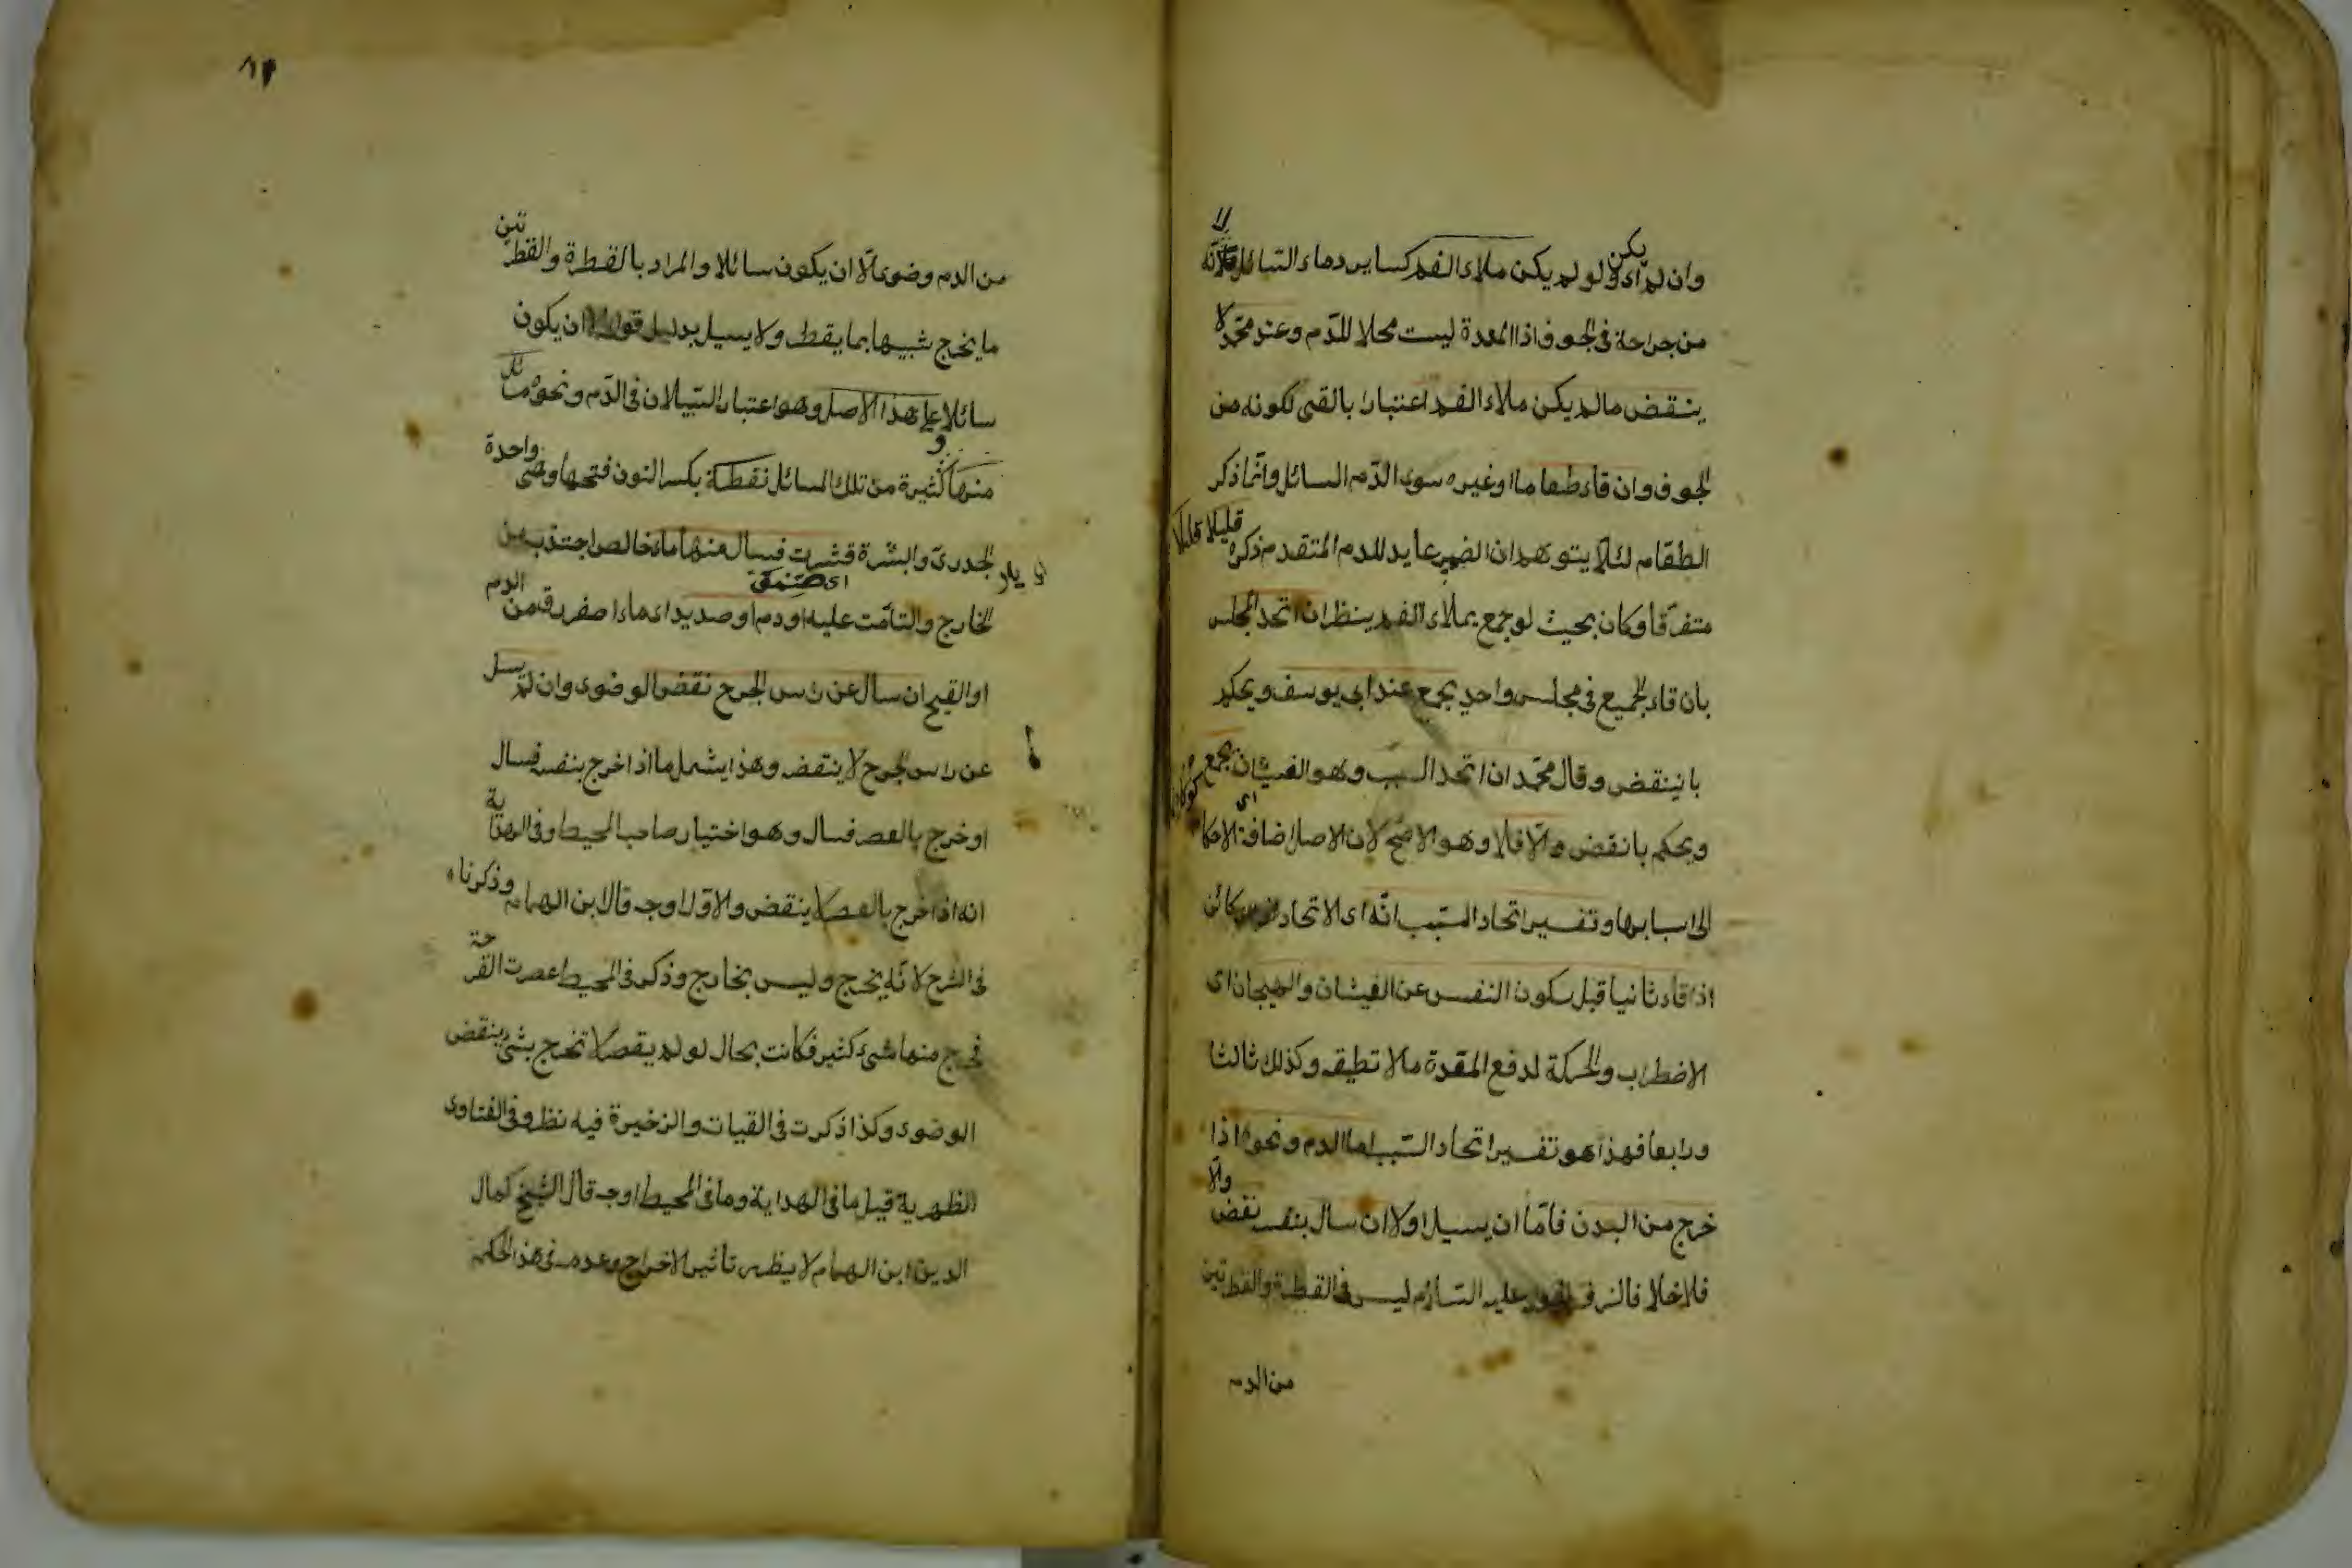 وان لم يكن اى ولو لم يكن ملاء الفم كساير دماء السائل لانه لا
من جراحة فى الجوف اذا المعدة ليست محلا للدم وعند محمد لا
ينقض مالم يكن ملاء الفم اعتبارا بالقى لكونه من
الجوف وان قاء طعاما او غيره سوى الدم السائل وانما ذكر
الطعام لئلا يتوهم ان الضمير عايد للدم المتقدم ذكره قليلا قليلا
متفرقا وكان بحيث لو جمع يملاء الفم ينظر ان اتحد المجلس
بان قاء الجميع فى مجلس واحد يجمع عند ابى يوسف ويحكم
بانينقض وقال محمد ان اتحد السبب وهو الغثيان يجمع
ويحكم بانقض والا فلا وهو الاصح لان الاصل اى اضافة الاحكا
الى اسبابها وتفسير اتحاد السبب انه اى الاتحاد كائن
اذا قاء ثانيا قبل سكون النفس عن الغيثان والهيجان اى
الاضطراب والحركة لدفع المقدة مالا تطيقه وكذلك ثالثا
ورابعا فهذا هو تفسير اتحاد السبب اما الدم ونحوه اذا
خرج من البدن فاما ان يسيل اولا ان سال بنفسه نقض والا
فلا خلافا لزفر عليه السلام ليس فى القطرة والقطرتين
من الدم
٨٢
من الدم وضوء الا ان يكون سائلا والمراد بالقطرة والقطرتين
ما يخرج شبيها بما يقطر ولا يسيل بدليل قوله الا ان يكون
سائلا على هذا الاصل وهو اعتبار السيلان فى الدم ونحوه مسائل
منها كثيرة ومن تلك المسائل نقطة بكسر النون فتحها وهى واحدة
الجدرى والبثرة قشرت فسال منها ماء خالص اجتذب من
اى ضمت
الخارج والتأمت عليه او دم او صديد اى ماء اصفر رقيق من الدم
او القيح ان سال عن راس الجرح نقض الوضوء وان لم يسل
عن راس الجرح لا ينتقض وهذا يشمل ما اذا خرج بنفسه فسال
او خرج بالعصر فسال وهو اختيار صاحب المحيط وفى الهداية
انه اذا خرج بالعصر لا ينقض والاول اوجه قال ابن الهمام وذكرناه
فى الشرح لانه يخرج وليس بخارج وذكر فى المحيط عصرت القرحة
فخرج منها شئ كثير فكانت بحال لو لم يعصر لا تخرج بشئ ينقض
الوضوء وكذا ذكرت فى القيات والزخيرة فيه نظر وفى الفتاوى
الظهرية قيل ما فى الهداية وما فى المحيط اوجه قال الشيخ كمال
الدين ابن الهمام لا يظهر تاثير الاخراج وعدمه فى هذا الحكم